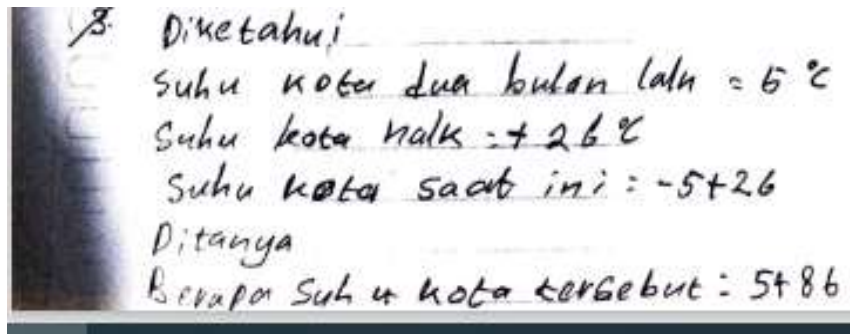 3. Diketahui
Suhu kota dua bulan lalu = 5 °C
Suhu kota naik : + 26 °C
Suhu kota saat ini : -5+26
Ditanya
Berapa Suhu kota tersebut : 5+86